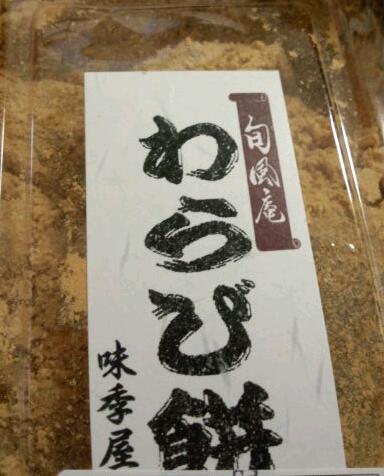 旬風庵
わらび餅
味季屋